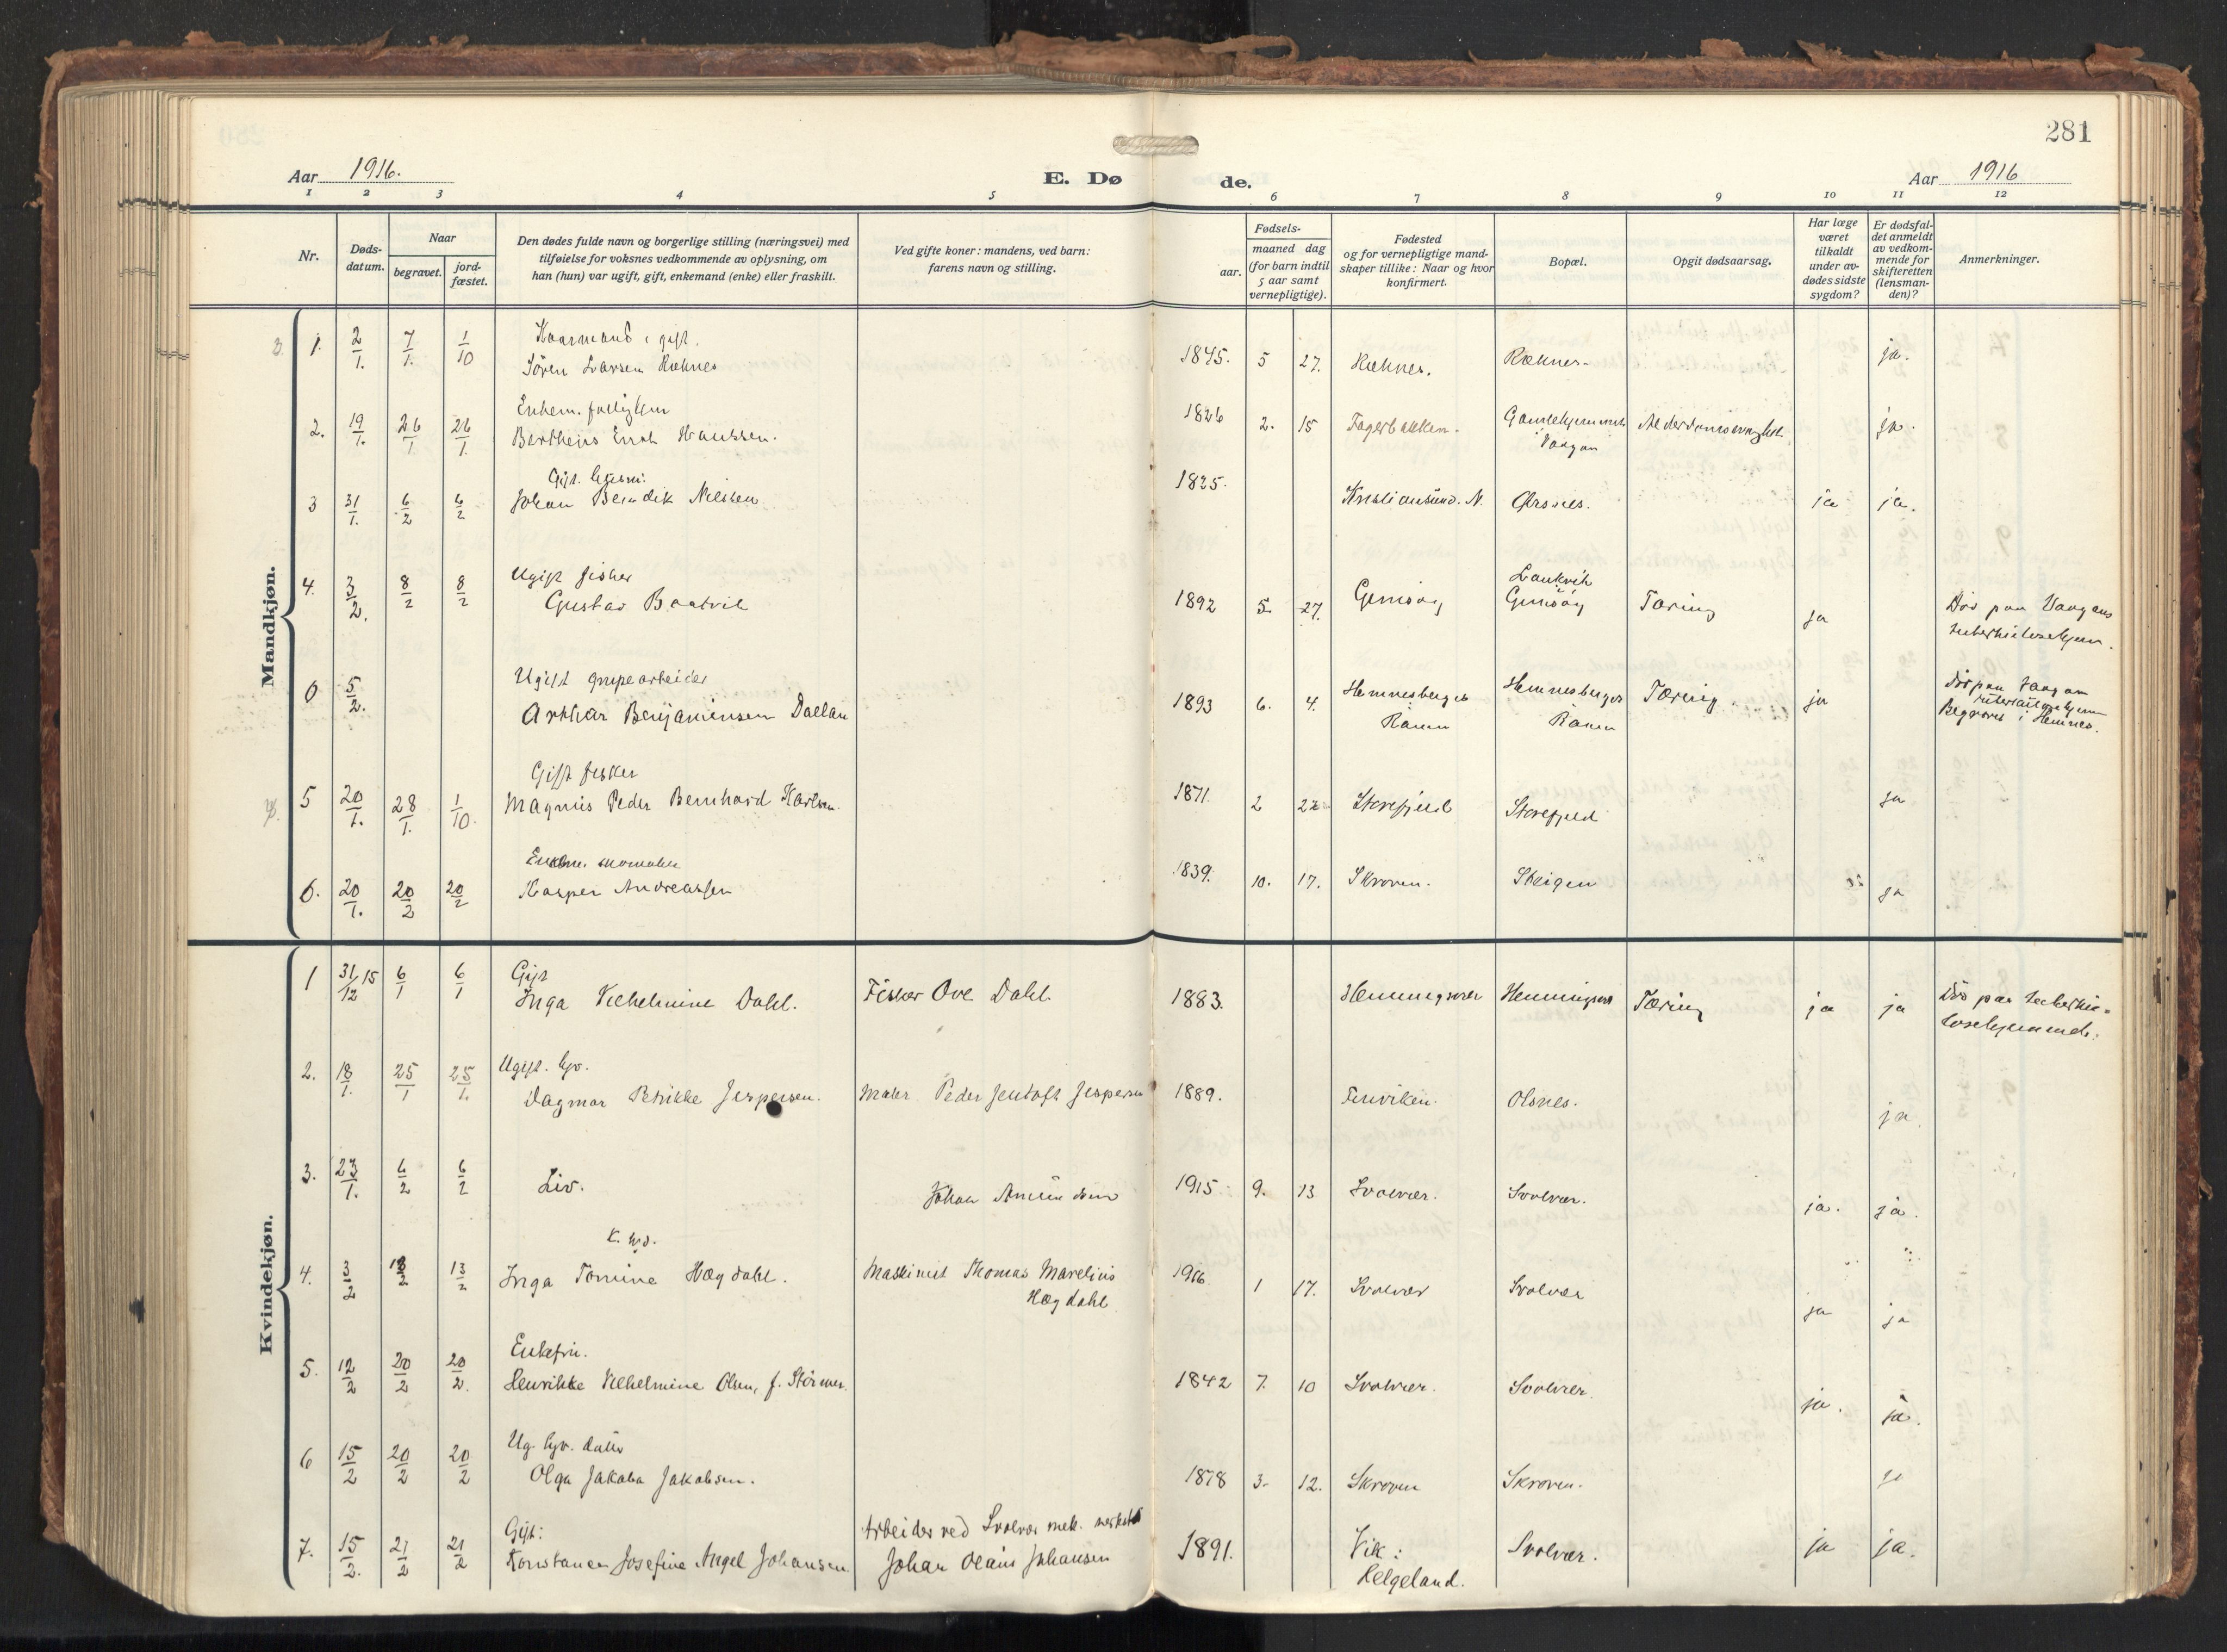 281
Aar 1916.
E. Dø
de.
Aar 1916
1 2 3 4 5 6 7 8 9 10 11 12
Nr.
Døds-
datum.
Naar
begravet.
jord-
fæstet.
Den dødes fulde navn og borgerlige stilling (næringsvei) med
tilføielse for voksnes vedkommende av oplysning, om
han (hun) var ugift, gift, enkemand (enke) eller fraskilt.
Ved gifte koner: mandens, ved barn:
farens navn og stilling.
Fødsels-
aar.
maaned dag
(for barn indtil
5 aar samt
vernepligtige).
Fødested
og for vernepligtige mand-
skaper tillike: Naar og hvor
konfirmert.
Bopæl.
Opgit dødsaarsag.
Har læge
været
tilkaldt
under av-
dødes sidste
sygdom?
Er dødsfal-
det anmeldt
av vedkom-
mende for
skifteretten
(lensman-
den)?
Anmerkninger.
Mandkjøn.
1. 2/1. 7/1. 1/10 gift.
Søren Larsen Ræknes 1845. 5 27. Ræknes. Ræknes ja.
2. 19/1. 26/1 26/1. Enkem.
Hanssen. 1826 2. 15 Fagerbakken. Gamlehjemmet
Vaagan ja.
3 31/1. 6/2 6/2 Gift.
Johan Bendik Nilssen 1825. Kristiansund. N. ja ja.
4. 3/2. 8/2 8/2 Ugift fisker
Gustav 1892 5. 27. Gimsøy Laukvik
Gimsøy Tæring ja Død paa Vaagans
tuberkulosehjem.
6 5/2. Ugift grupearbeider
Arthur Benjaminsen 1893 6. 4. Hemnesberget
Ranen Hemnesberget
Ranen Tæring. ja Død paa Vaagan
tuberkulosehjem
Begraves i Hemnes.
5 20/1. 28/1. 1/10. Gift fisker
Magnus Peder Bernhard Karlsen. 1871. 2 22 Storefjeld Storefjeld ja
6. 20/1. 20/2 20/2 Enkem. skomaker
Kasper Andreassen 1839. 10. 17. Skroven. Steigen ja
Kvindekjøn.
1 31/12 15 6/1 6/1 Gift
Inga Vilhelmine Dahl. Fisker Ove Dahl. 1883. Henningsvær Henningsvær Tæring ja ja Død paa tuberku-
losehjemmet.
2. 18/1. 25/1 25/1. Ugift.
Dagmar Petrikke Jespersen. Maler Peder Jentoft Jespersen 1889. Olsnes. ja
3. 23/1. 6/2 6/2 Liv. Johan Amundsen 1915. 9. 13 Svolvær. Svolvær. ja. ja.
4. 3/2 13/2 13/2 Inga Tomine Hægdahl. Maskinist Thomas Marelius
Hægdahl 1916 1 17. Svolvær Svolvær ja ja
5. 12/2 20/2 20/2. Enkefru.
Henrikke Vilhelmine Olsen, f. Störmer. 1842 7. 10 Svolvær. Svolvær. ja. ja.
6 15/2 20/2 20/2 Ug. datter
Olga Jakoba Jakobsen. 1878 3. 12. Skroven Skroven. ja
7. 15/2. 21/2 21/2 Gift: Arbeider ved Svolvær mek. verksted
Konstance Josefine Angel Johansen. Johan Olaus Johansen 1891. Vik:
Helgeland. Svolvær. ja ja.